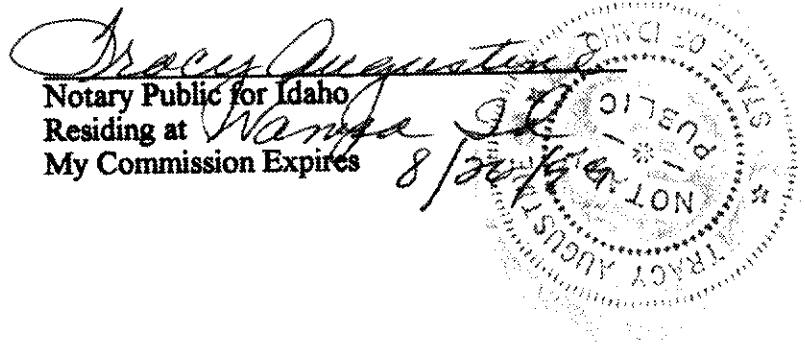 Tracy Augustine
Notary Public for Idaho
Residing at Nampa Id
My Commission Expires 8/20/
TRACY AUGUSTINE
NOTARY PUBLIC
STATE OF IDAHO